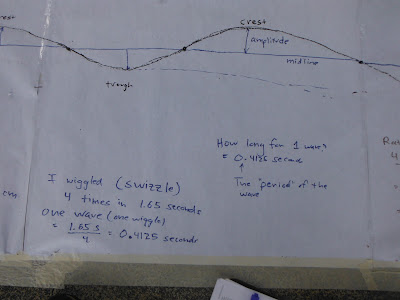 crest
crest
amplitude
midline
trough
How long for 1 wave?
= 0.4126 second
The "period" of the
wave
I wiggled (swizzle)
4 times in 1.65 seconds
one wave (one wiggle)
= 1.65 s
4
= 0.4125 seconds
cm
4